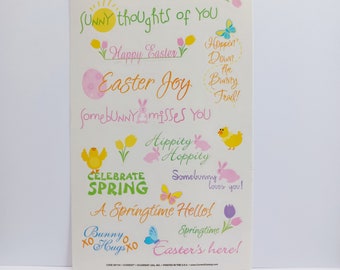 sunny thoughts of you
Happy Easter
Hoppin'
Down
the
Bunny
Trail!
Easter Joy
somebunny misses you
Hippity
Hoppity
CELEBRATE
SPRING
Somebunny
loves you!
A Springtime Hello!
Bunny
Hugs
XO
O
XO
Springtime
Easter's here!